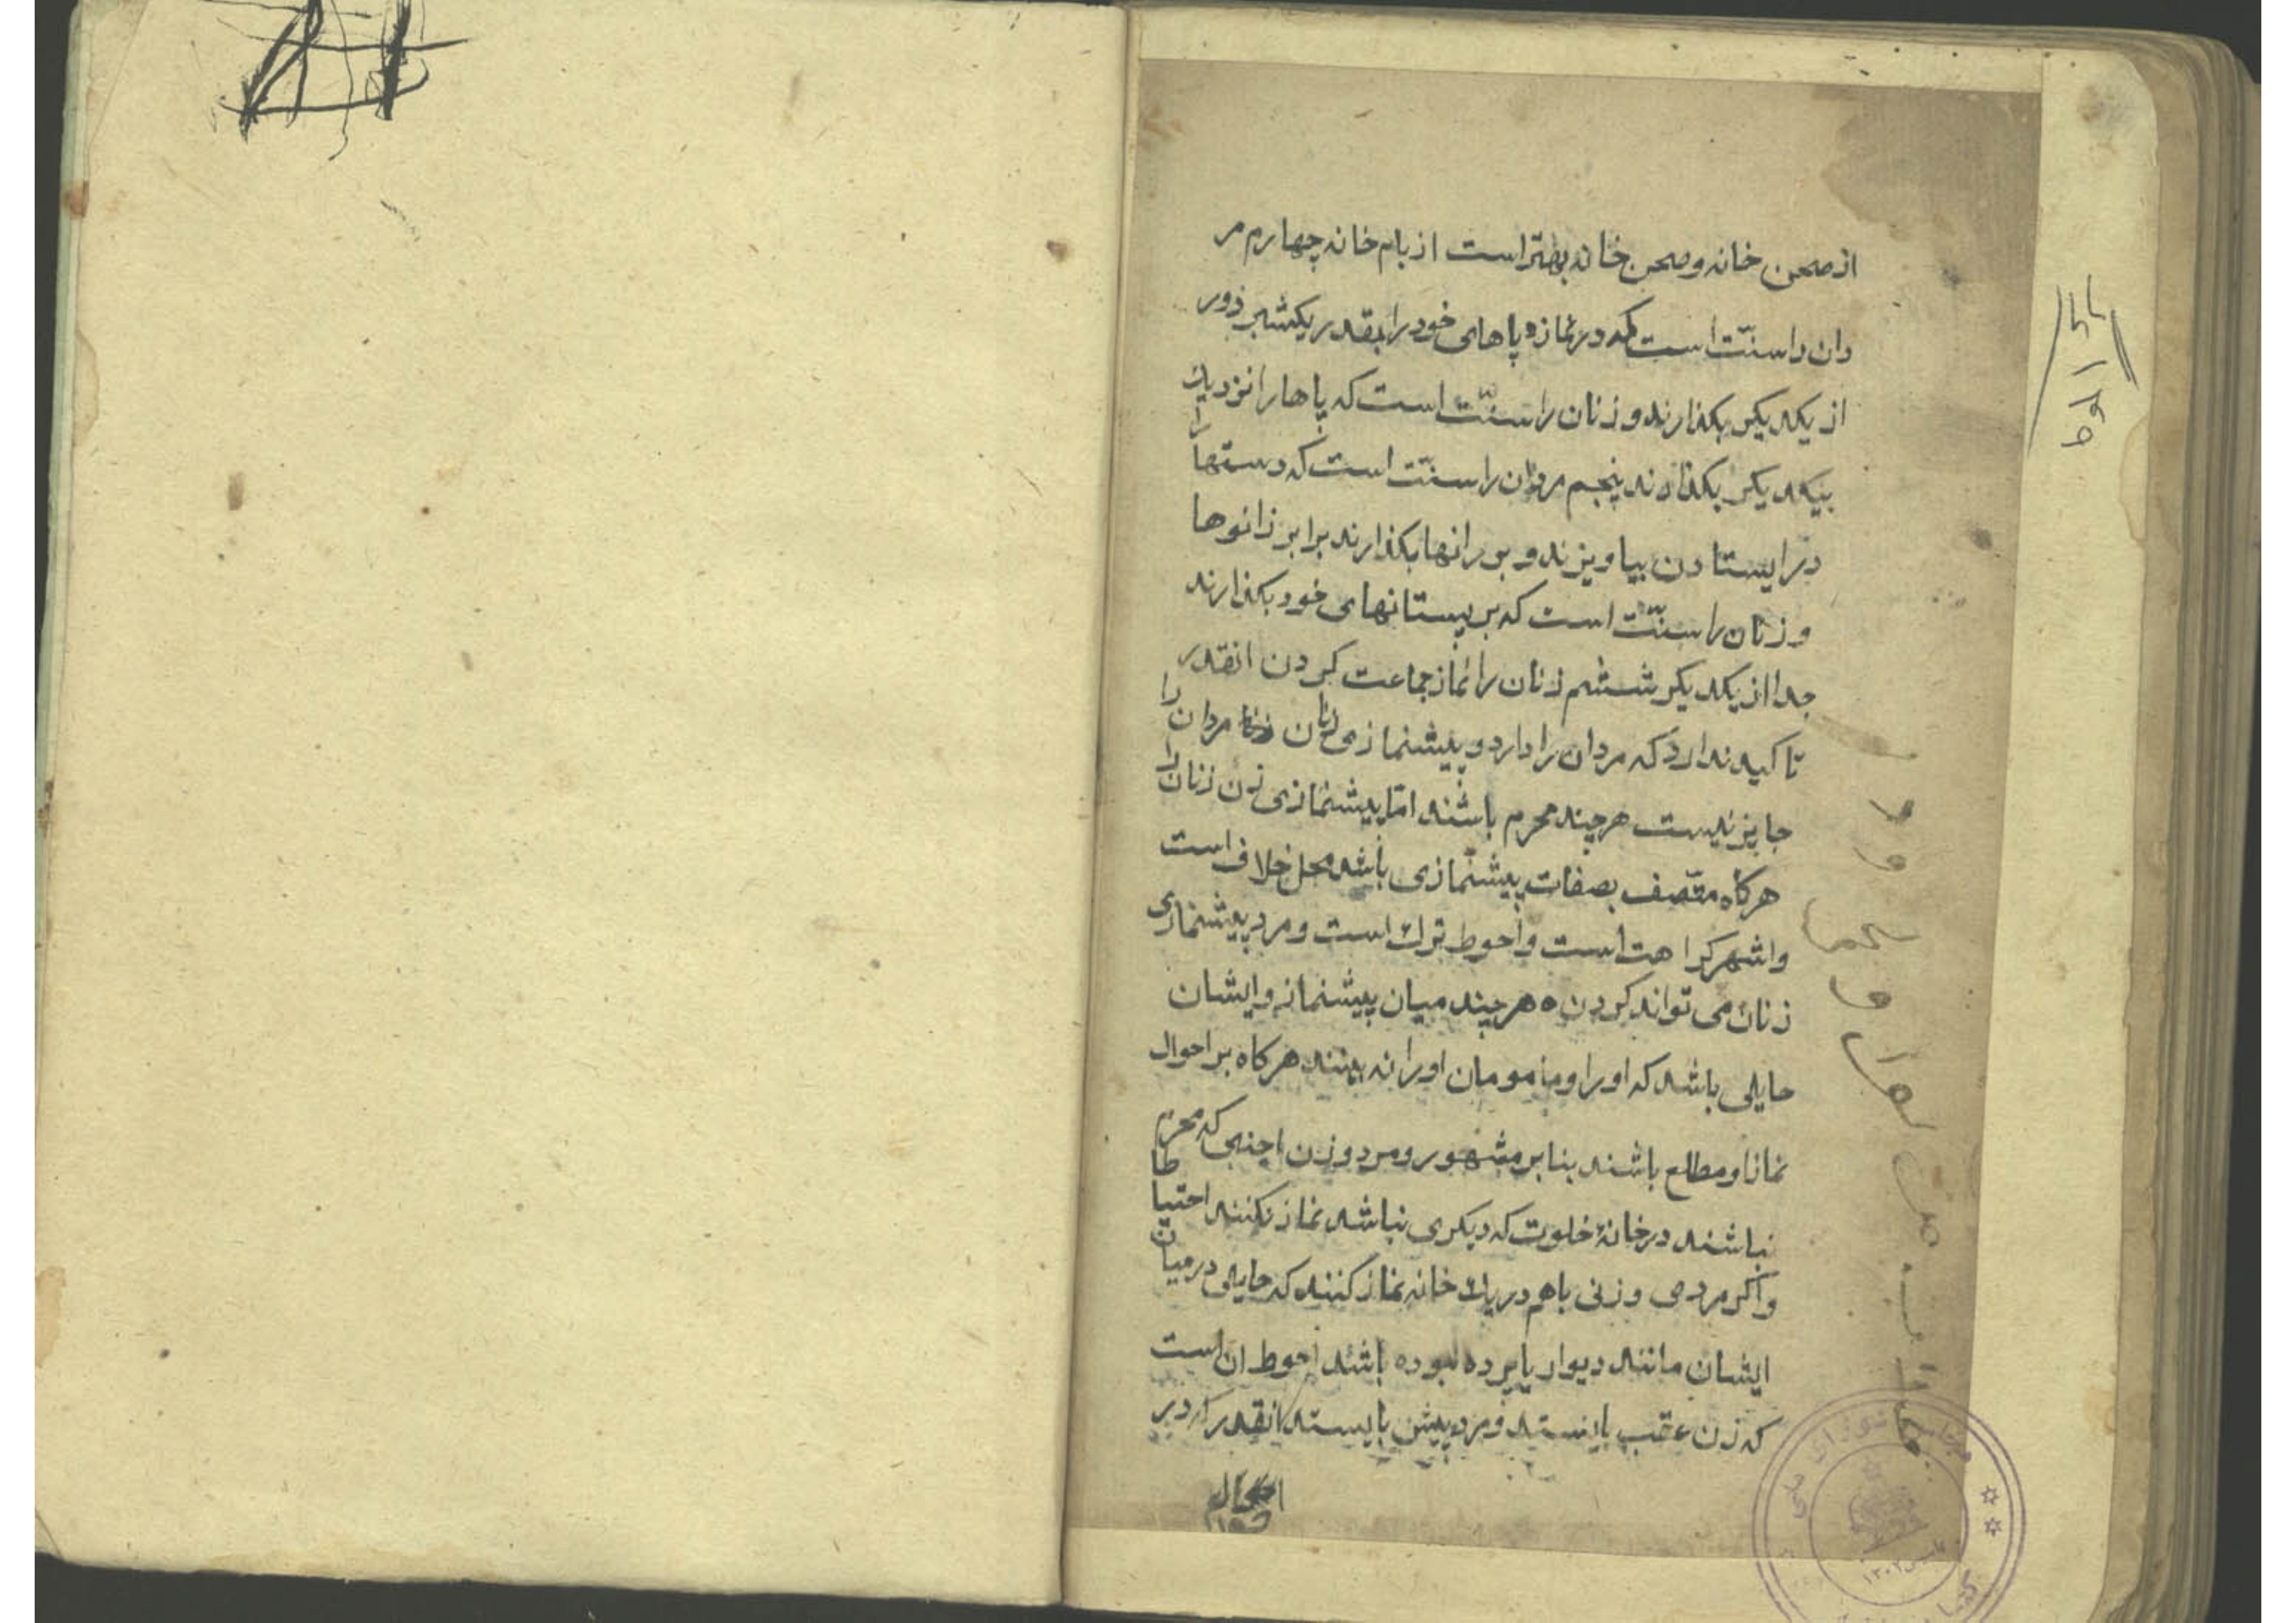 از صحن خانه و صحن خانه بهتر است از بام خانه چهارم مر
دان را سنّت است که در نماز پاهای خود را بقدر یکشبر دور
از یکدیکر بکذارند و زنان را سنّت است که پاها را نزدیک
بیکدیکر بکذارند پنجم مردان را سنّت است که دستها را
در ایستادن بیاویزند و بر رانها بکذارند برابر زانوها
و زنان را سنّت است که بر پستانهای خود بکذارند
جدا از یکدیکر ششم زنان را نماز جماعت کردن انقدر
تاکید ندارد که مردان را دارد و پیشنمازی زنان مردان را
جایز نیست هر چند محرم باشند امّا پیشنمازی زن زنان را
هرکاه متّصف بصفات پیشنمازی باشد محل خلاف است
و اشهر کراهت است و احوط ترک است و مرد پیشنمازی
زنان می تواند کردن هر چند میان پیشنماز و ایشان
حایلی باشد که او را و مامومان او را نه بینند هرکاه بر احوال
نماز او مطلع باشند بنابر مشهور و مرد و زن اجنبی که محرم
نباشند در خانهٔ خلوت که دیکری نباشد نماز نکنند احتیاطا
و اکر مردی و زنی باهم در یک خانه نماز کنند که حایلی در میان
ایشان مانند دیوار یا پرده نبوده باشد احوط ان است
که زن عقب بایستد و مرد پیش بایستد انقدر که در